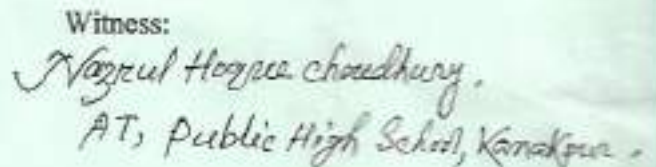 Witness:
Nazrul Hoque choudhury.
AT, Public High School, Kanakpur.